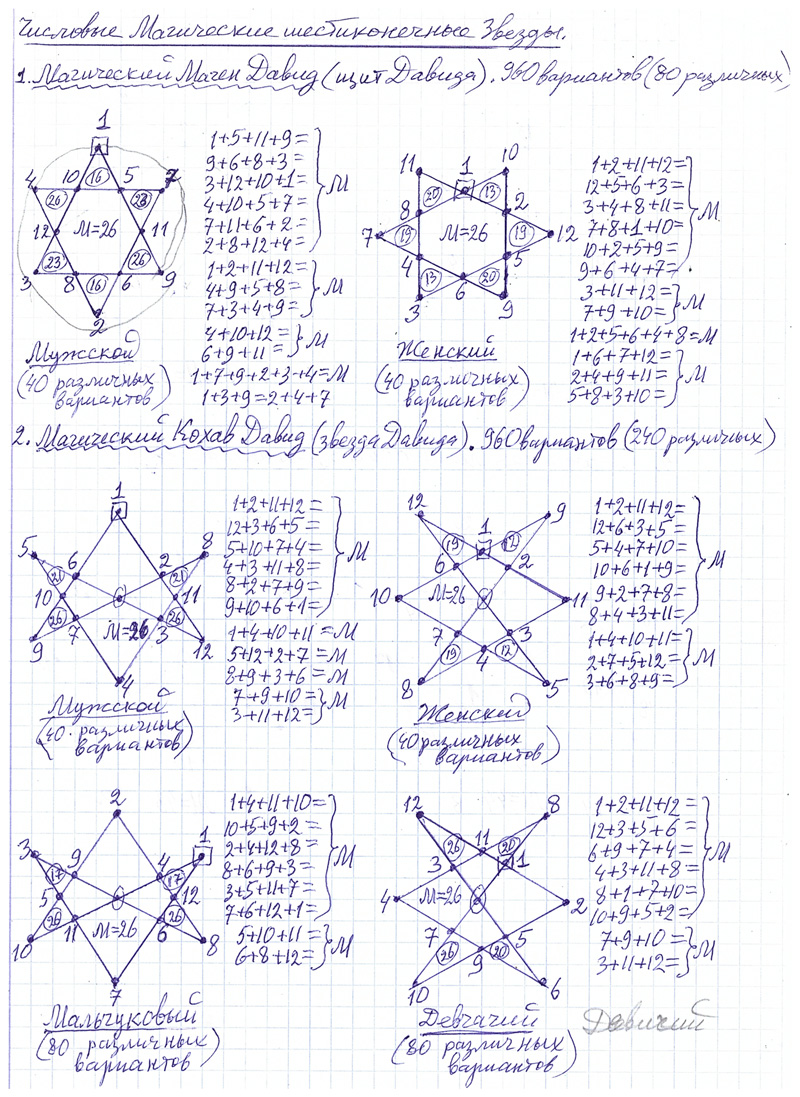 Числовые Магические шестиконечные Звезды.
1. Магический Маген Давид (щит Давида). 960 вариантов (80 различных)
1
4 10 16 5 7
26 28
12 M=26 11
23 26
3 8 16 6 9
2
Мужской
(40 различных вариантов)
1+5+11+9=
9+6+8+3=
3+12+10+1=
4+10+5+7=
7+11+6+2=
2+8+12+4=
} M
1+2+11+12=
4+9+5+8=
7+3+4+9=
} M
4+10+12=
6+9+11=
} M
1+7+9+2+3+4=M
1+3+9=2+4+7
11 1 10
20 13
8 2
7 19 M=26 19 12
4 5
13 20
3 6 9
Женский
(40 различных вариантов)
1+2+11+12=
12+5+6+3=
3+4+8+11=
7+8+1+10=
10+2+5+9=
9+6+4+7=
} M
3+11+12=
7+9+10=
} M
1+2+5+6+4+8=M
1+6+7+12=
2+4+9+11=
5+8+3+10=
} M
2. Магический Кохав Давид (звезда Давида). 960 вариантов (240 различных)
1
5 6 2 8
21 21
10 11
26 7 M=26 3 26
9 12
4
Мужской
(40 различных вариантов)
1+2+11+12=
12+3+6+5=
5+10+7+4=
4+3+11+8=
8+2+7+9=
9+10+6+1=
} M
1+4+10+11=M
5+12+2+7=M
8+9+3+6=M
7+9+10=
3+11+12=
} M
12 1 9
19 12
6 2
10 M=26 11
7 3
19 4 12
8 5
Женский
(40 различных вариантов)
1+2+11+12=
12+6+3+5=
5+4+7+10=
10+6+1+9=
9+2+7+8=
8+4+3+11=
} M
1+4+10+11=
2+7+5+12=
3+6+8+9=
} M
2
3 9 4 1
17 17
5 12
26 11 M=26 6 26
10 8
7
Мальчуковый
(80 различных вариантов)
1+4+11+10=
10+5+9+2=
2+4+12+8=
8+6+9+3=
3+5+11+7=
7+6+12+1=
} M
5+10+11=
6+8+12=
} M
12 11 8
26 20
3 1
4 M=26 2
7 5
26 9 20
10 6
Девчачий
Девичий
(80 различных вариантов)
1+2+11+12=
12+3+5+6=
6+9+7+4=
4+3+11+8=
8+1+7+10=
10+9+5+2=
} M
7+9+10=
3+11+12=
} M